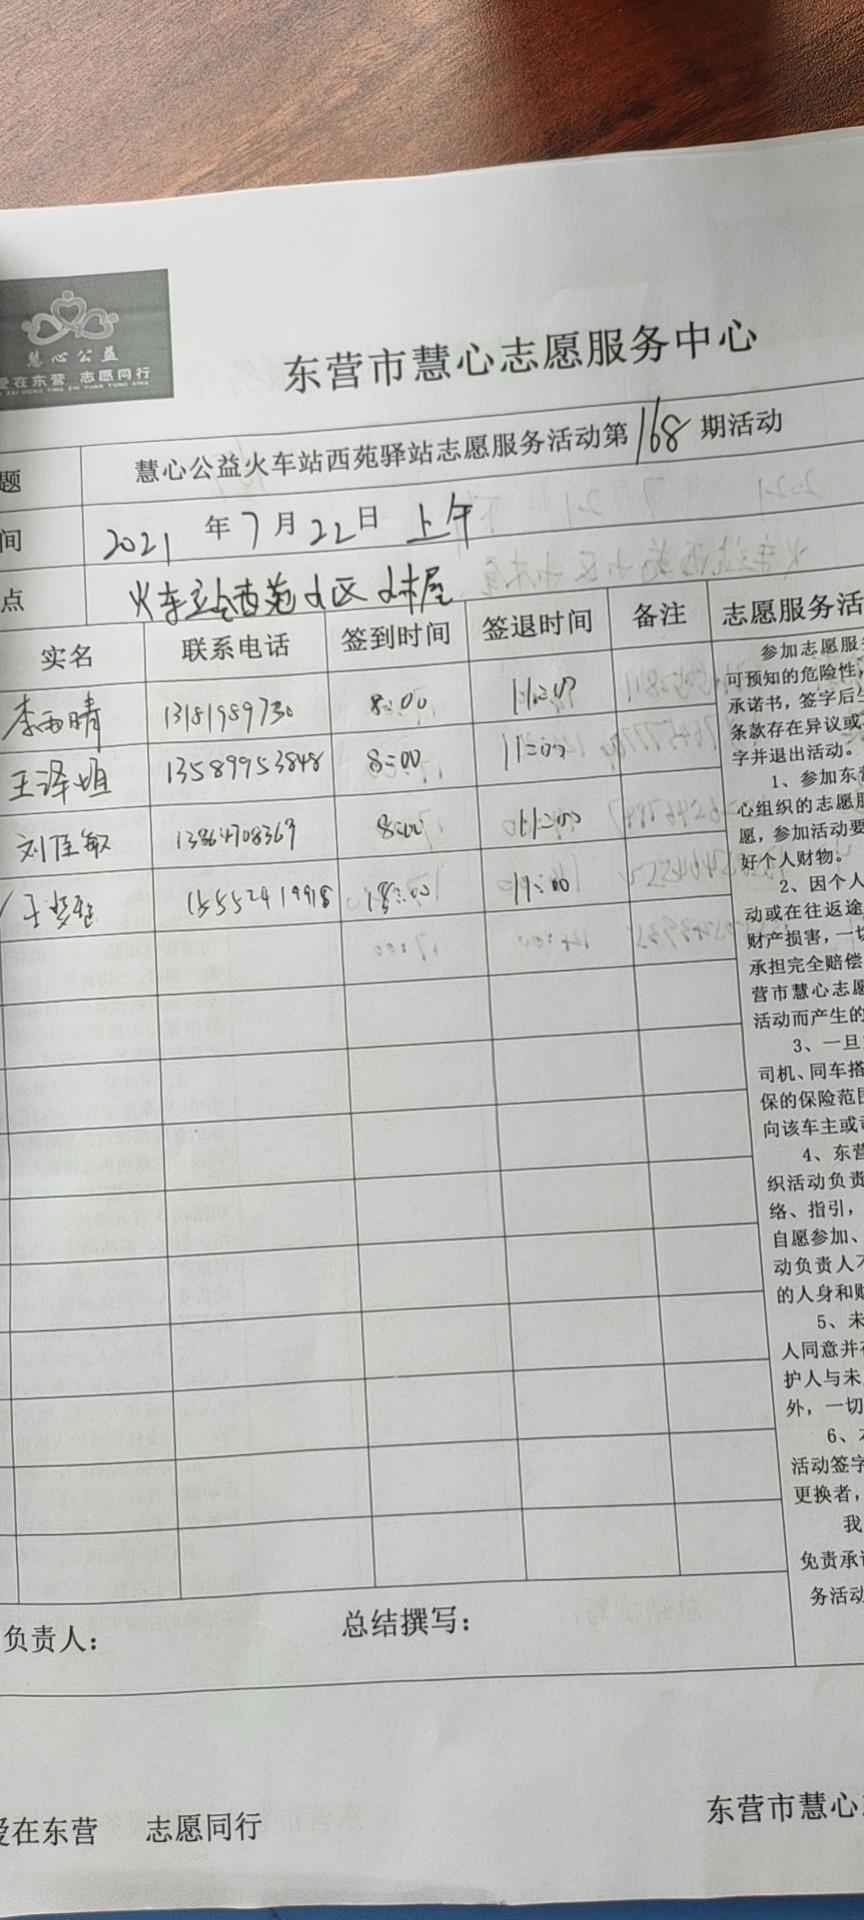 慧心公益
爱在东营 志愿同行
东营市慧心志愿服务中心
题 慧心公益火车站西苑驿站志愿服务活动第168期活动
间 2021年7月22日 上午
点 火车站西苑小区小木屋
实名 联系电话 签到时间 签退时间 备注 志愿服务活
李雨晴 13181989730 8:00 11:00
王泽旭 13589953848 8:00 11:00
刘佳敏 13864708369 8:00 11:00
15552419918 8:00 11:00
参加志愿服务
可预知的危险性，
承诺书，签字后生
条款存在异议或
字并退出活动。
1、参加东营
心组织的志愿服
愿，参加活动要
好个人财物。
2、因个人
动或在往返途
财产损害，一切
承担完全赔偿
营市慧心志愿
活动而产生的
3、一旦
司机、同车搭
保的保险范围
向该车主或
4、东营
织活动负责
络、指引，
自愿参加、
动负责人不
的人身和财
5、未
人同意并在
护人与未
外，一切
6、本
活动签字
更换者，
我
免责承诺
务活动
负责人： 总结撰写：
爱在东营 志愿同行 东营市慧心